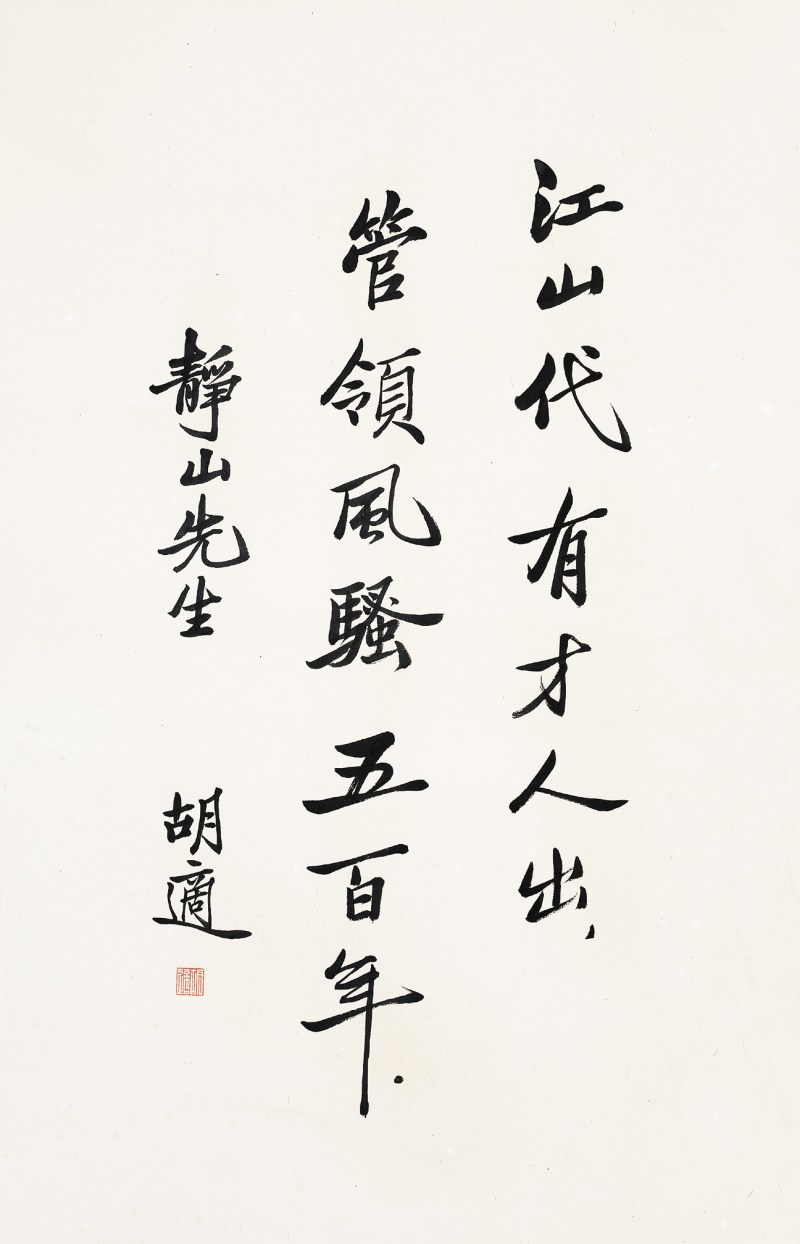 江山代有才人出，
管領風騷五百年．
靜山先生
胡適